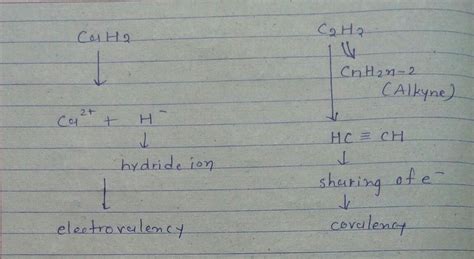 CaH2
Ca²⁺ + H⁻
hydride ion
electrovalency
C2H2
CnH2n-2
(Alkyne)
HC ≡ CH
sharing of e⁻
covalency